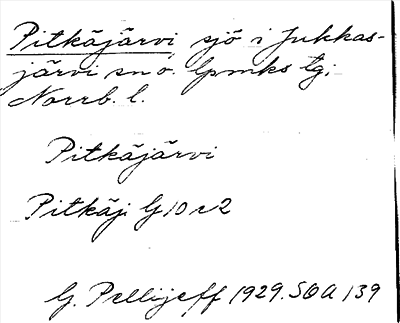 Pitkäjärvi, sjö i Jukkas-
järvi sn o. lpmks tg;
Norrb. l.
Pitkäjärvi
Pitkäj. G 10 r 2
G. Pellijeff 1929. SOA 139